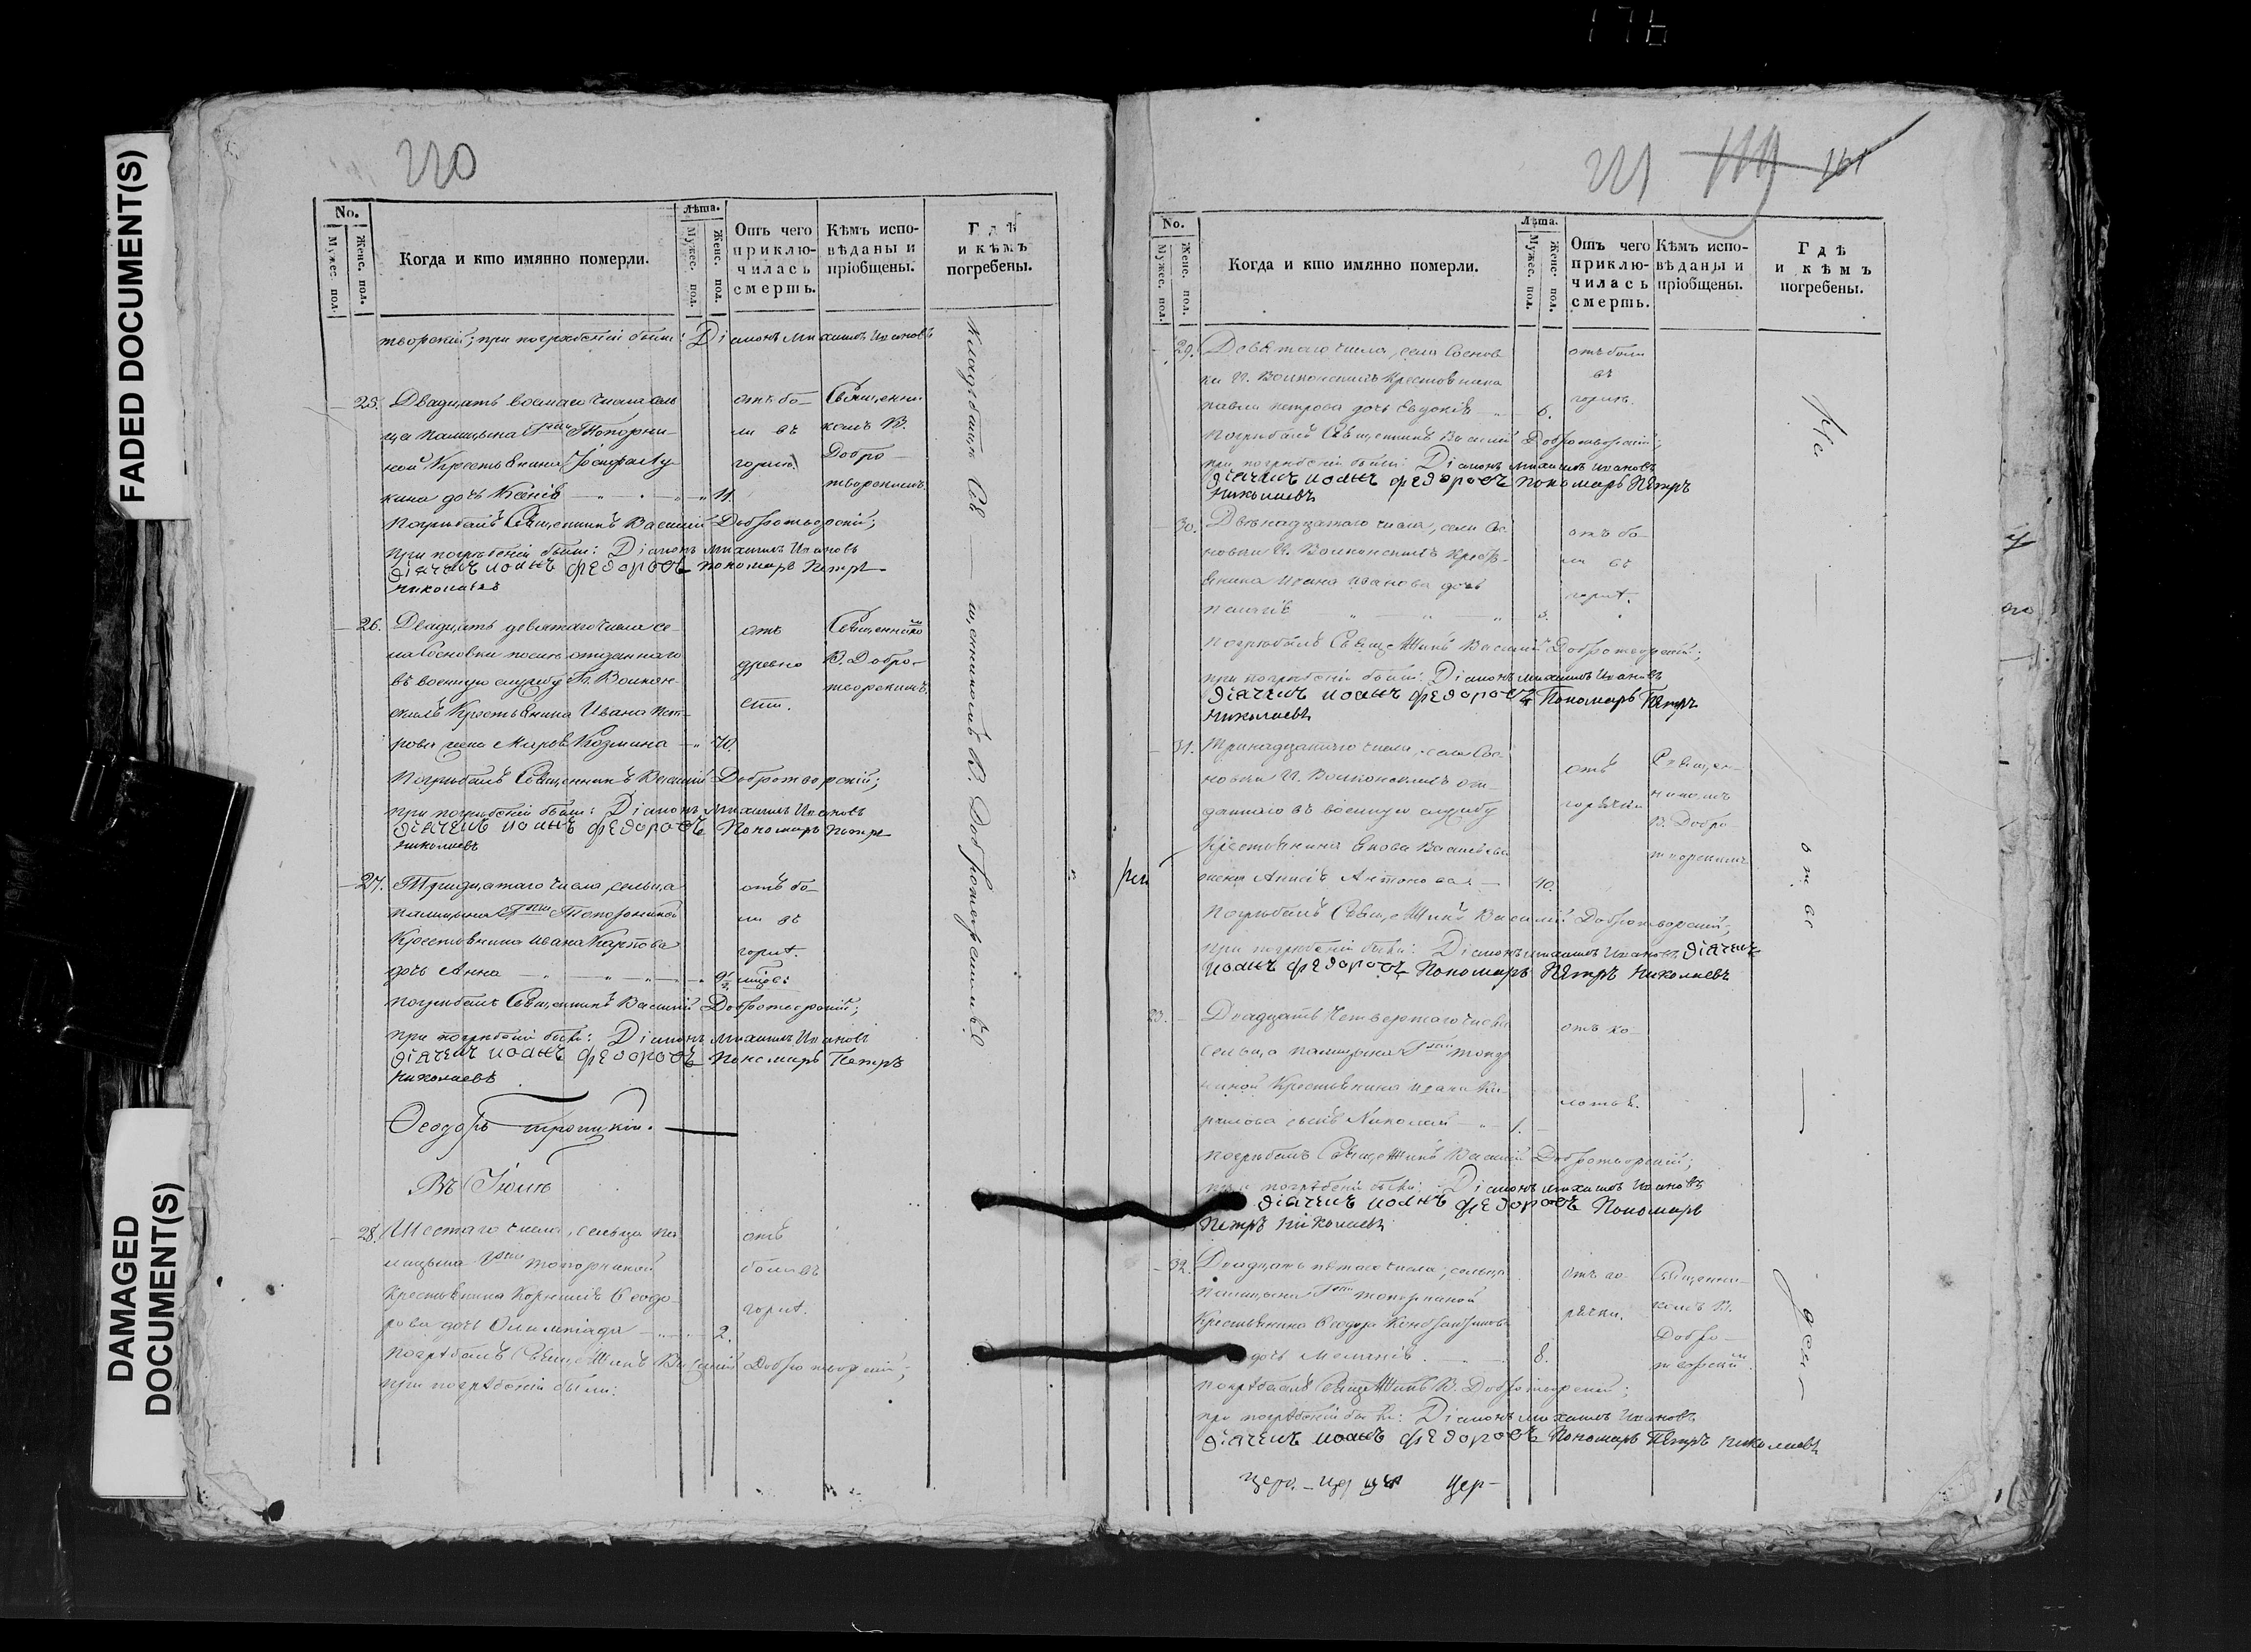 176
FADED DOCUMENT(S)
DAMAGED DOCUMENT(S)
220
No.
Мужес. пол.
Женс. пол.
Когда и кто имянно померли.
Лѣта.
Мужес. пол.
Женс. пол.
Отъ чего приклю-чилась смерть.
Кѣмъ испо-вѣданы и пріобщены.
Гдѣ и кѣмъ погребены.
творскій; при погребеніи были: Діаконъ Михаилъ Ивановъ
25. Двадцать восмаго числа сель
ца Палицына Гжи Топорни-
ной Крестьянина Іосифа Лу-
кина дочь Ксенія 11.
отъ бо-
ли въ
горлѣ
Священни-
комъ В.
Добро-
творскимъ
Погребалъ Священникъ Василій Добротворскій;
при погребеніи были: Діаконъ Михаилъ Ивановъ
Діачекъ Иоанъ Федоровъ Пономарь Петръ
Николаевъ
26. Двадцать девятаго числа се-
ла Сосновки послѣ отданнаго
въ военную службу Кн. Волкон-
скимъ Крестьянина Ивана Пет-
рова жена Марѳа Козмина 70.
отъ
древно
сти.
Священнико
В. Добро-
творскимъ.
Погребалъ Священникъ Василій Добротворскій;
при погребеніи были: Діаконъ Михаилъ Ивановъ
Діачекъ Иоанъ Федоровъ Пономарь Петръ
Николаевъ
27. Тридцатаго числа, сельца
Палицына Гжи Топорниной
Крестьянина Ивана Карпова
дочь Анна
отъ бо-
ли въ
горлѣ.
Погребалъ Священникъ Василій Добротворскій;
при погребеніи были: Діаконъ Михаилъ Ивановъ
Діачекъ Иоанъ Федоровъ Пономарь Петръ
Николаевъ
Ѳеодоръ Троицкій.
Въ Іюлѣ
28. Шестаго числа, сельца Па
лицына Гжи Топорниной
Крестьянина Корнилія Ѳеодо-
рова дочь Олимпіада 2.
отъ
боли въ
горлѣ.
Погребалъ Священникъ Василій Добротворскій;
при погребеніи были:
Кладбищѣ Свя — щенникомъ В. Добротворскимъ.
221
161
No.
Мужес. пол.
Женс. пол.
Когда и кто имянно померли.
Лѣта.
Мужес. пол.
Женс. пол.
Отъ чего приклю-чилась смерть.
Кѣмъ испо-вѣданы и пріобщены.
Гдѣ и кѣмъ погребены.
29. Девятаго числа, села Соснов
ки К. Волконскимъ Крестьянина
Павла Петрова дочь Евдокія 6.
отъ боли
въ
горлѣ.
Погребалъ Священникъ Василій Добротворскій;
при погребеніи были: Діаконъ Михаилъ Ивановъ
Діачекъ Иоанъ Федоровъ Пономарь Петръ
Николаевъ
30. Двѣнадцатаго числа, села Со
новки К. Волконскимъ Крест-
янина Ивана Иванова дочь
отъ бо-
ли въ
горлѣ.
Погребалъ Священникъ Василій Добротворскій;
при погребеніи были: Діаконъ Михаилъ Ивановъ
Діачекъ Иоанъ Федоровъ Пономарь Петръ
Николаевъ
31. Тринадцатаго числа, села Сос-
новки К. Волконскимъ от-
даннаго въ военную службу
Крестьянина Якова Васильева
жена Анисія Антонова 40.
отъ
горячки
Священ-
никомъ
В. Добро-
творскимъ
Погребалъ Священникъ Василій Добротворскій;
при погребеніи были: Діаконъ Михаилъ Ивановъ Діачекъ
Иоанъ Федоровъ Пономарь Петръ Николаевъ
23. Двадцать Четвертаго числа
сельца Палицына Гжи Топор
ниной Крестьянина Ивана Ки-
рилова сынъ Николай 1.
отъ ко-
лотья.
Погребалъ Священникъ Василій Добротворскій;
при погребеніи были: Діаконъ Михаилъ Ивановъ
Діачекъ Иоанъ Федоровъ Пономарь
Петръ Николаевъ
32. Двадцать пятаго числа, сельца
Палицына Гжи Топорниной
Крестьянина Ѳеодора Кондратьева
дочь Меланія 8.
отъ го-
рячки.
Священни-
комъ В.
Добро-
творским.
Погребалъ Священникъ В. Добротворскій;
при погребеніи были: Діаконъ Михаилъ Ивановъ
Діачекъ Иоанъ Федоровъ Пономарь Петръ Николаевъ